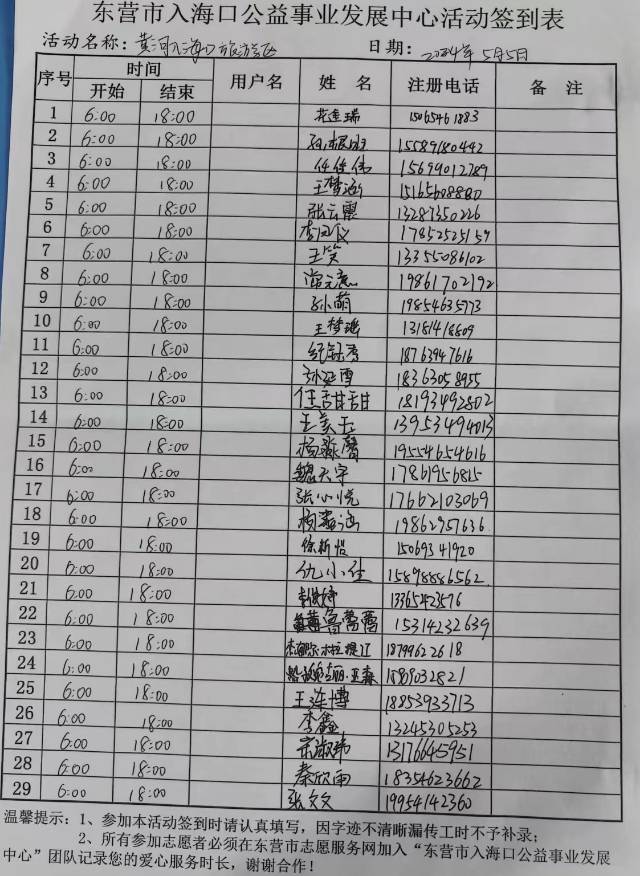 东营市入海口公益事业发展中心活动签到表
活动名称：黄河入海口旅游区 日期：2024年5月5日
序号 时间 用户名 姓名 注册电话 备注
开始 结束
1 6:00 18:00 15065461883
2 6:00 18:00 15589180442
3 6:00 18:00 任佳伟 15699012789
4 6:00 18:00 王梦涵 15165608880
5 6:00 18:00 张云霞 13287350226
6 6:00 18:00 李凤仪 17852525159
7 6:00 18:00 王笑 13355086102
8 6:00 18:00 19861702192
9 6:00 18:00 孙萌 19854635773
10 6:00 18:00 王梦瑶 13181418809
11 6:00 18:00 18763947616
12 6:00 18:00 孙延雪 18363058955
13 6:00 18:00 任甜甜 18193492802
14 6:00 18:00 王美玉 13953494013
15 6:00 18:00 杨淼馨 19554654616
16 6:00 18:00 魏天宇 17861956815
17 6:00 18:00 张小悦 17662103069
18 6:00 18:00 19862957636
19 6:00 18:00 徐新怡 15069341920
20 6:00 18:00 仇小佳 15898886562
21 6:00 18:00 13365423576
22 6:00 18:00 鲁蕾蕾 15314232639
23 6:00 18:00 18799622618
24 6:00 18:00
25 6:00 18:00 王连博 18853933713
26 6:00 18:00 李鑫 13245305253
27 6:00 18:00 宋淑玮 13176645951
28 6:00 18:00 秦欣雨 18354623662
29 6:00 18:00 张文文 19954142360
温馨提示：1、参加本活动签到时请认真填写，因字迹不清晰漏传工时不予补录；
2、所有参加志愿者必须在东营市志愿服务网加入“东营市入海口公益事业发展
中心”团队记录您的爱心服务时长，谢谢合作！